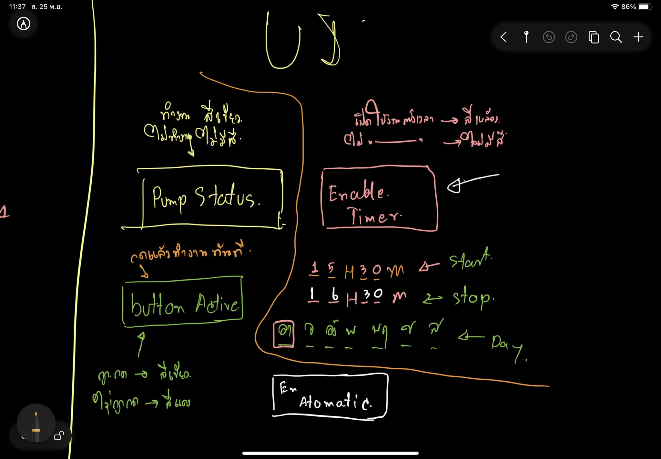 11:37 อ. 25 พ.ย.
86%
UI
ทำงาน สีเขียว
ไม่ทำงาน ไม่มีสี
Pump Status.
กดแล้วทำงานทันที
button Active
ถูกกด → สีเขียว
ไม่ถูกกด → สีแดง
→ สีเหลือง
→ ไม่มีสี
Enable
Timer
15 H 30 M ← Start
16 H 30 M ← Stop.
อา จ อ พ พฤ ศ ส ← Day.
En
Atomatic.